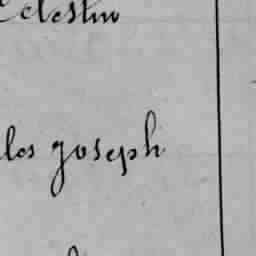 Celestin
les joseph